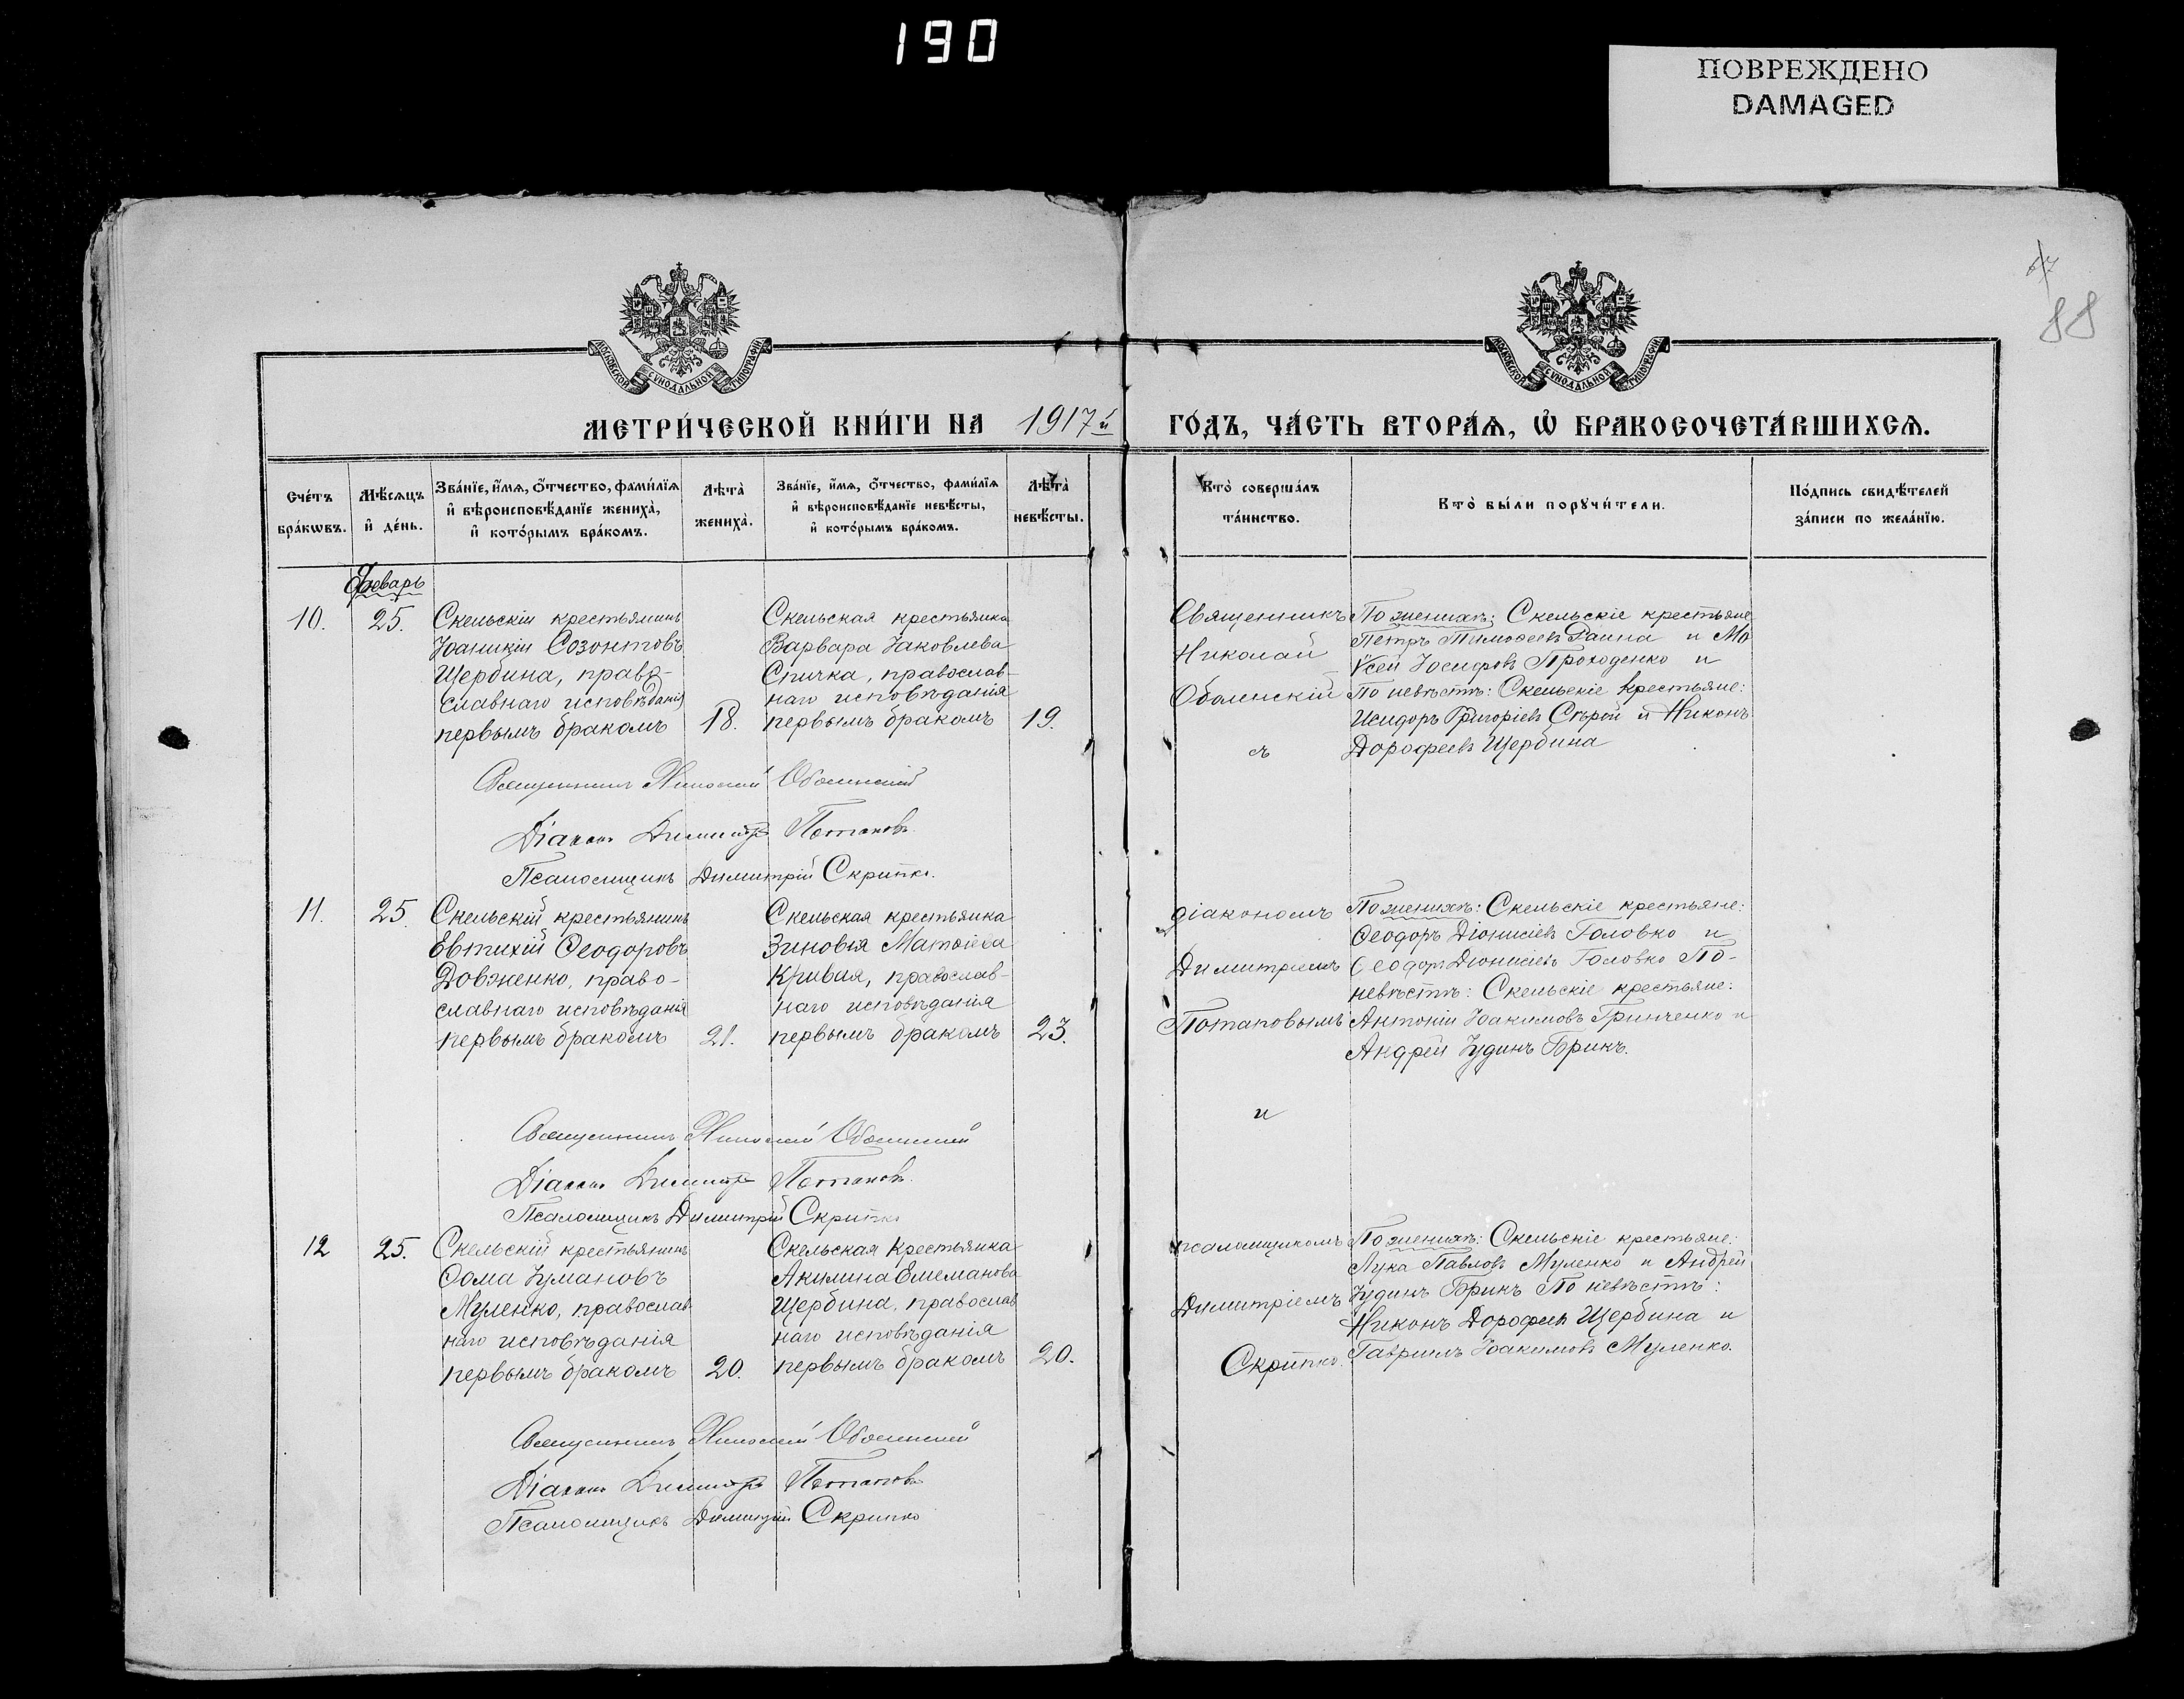 190
ПОВРЕЖДЕНО
DAMAGED
67
88
МОСКОВСКОЙ СѴНОДАЛЬНОЙ ТИПОГРАФІИ
МОСКОВСКОЙ СѴНОДАЛЬНОЙ ТИПОГРАФІИ
МЕТРИ́ЧЕСКОЙ КНИ́ГИ НА 1917й ГО́ДЪ, ЧА́СТЬ ВТОРА́Ѧ, Ѡ҆ БРАКОСОЧЕТА́ВШИХСѦ.
Сче́тъ бра́кѡвъ.
Мѣ́сѧцъ и҆ де́нь.
Зва́нїе, и҆́мѧ, ѻ҆́тчество, фами́лїѧ и҆ вѣроисповѣ́данїе жениха̀, и҆ кото́рымъ бра́комъ.
Лѣта̀ жениха̀.
Зва́нїе, и҆́мѧ, ѻ҆́тчество, фами́лїѧ и҆ вѣроисповѣ́данїе невѣ́сты, и҆ кото́рымъ бра́комъ.
Лѣта̀ невѣ́сты.
Кто̀ соверша́лъ та́инство.
Кто̀ бы́ли порꙋчи́тели.
По́дпись свидѣ́телей за́писи по жела́нїю.
Февраль
10. 25.
Скельскій крестьянинъ
Іоаникій Созонтовъ
Щербина, право-
славнаго исповѣданія
первымъ бракомъ 18.
Скельская крестьянка
Варвара Іаковлева
Спичка, православ-
наго исповѣданія
первымъ бракомъ 19.
Священникъ
Николай
Оболенскій
съ
По женихѣ: Скельскіе крестьяне
Петръ Тимофеевъ Раина и Мо
ѵсей Іосифовъ Проходенко и
По невѣстѣ: Скельскіе крестьяне:
Исидоръ Григоріевъ Сѣрой и Никонъ
Дорофеевъ Щербина
Священникъ Николай Оболенскій
Діаконъ Димитрій Потаповъ
Псаломщикъ Димитрій Скрипко.
11. 25.
Скельскій крестьянинъ
Евтихій Ѳеодоровъ
Довженко, право-
славнаго исповѣданія
первымъ бракомъ 21.
Скельская крестьянка
Зиновія Матѳіева
Кривая, православ-
наго исповѣданія
первымъ бракомъ 23.
діакономъ
Димитріемъ
Потаповымъ
и
По женихѣ: Скельскіе крестьяне:
Ѳеодоръ Діонисіевъ Головко и
Ѳеодоръ Діонисіевъ Головко По-
невѣстѣ: Скельскіе крестьяне:
Антоній Іоакимовъ Гринченко и
Андрей Іудинъ Брикъ.
Священникъ Николай Оболенскій
Діаконъ Димитрій Потаповъ
Псаломщикъ Димитрій Скрипко
12 25.
Скельскій крестьянинъ
Ѳома Іумановъ
Муленко, православ
наго исповѣданія
первымъ бракомъ 20.
Скельская крестьянка
Акилина Емеманова
Щербина, православ
наго исповѣданія
первымъ бракомъ 20.
псаломщикомъ
Димитріемъ
Скрипко.
По женихѣ: Скельскіе крестьяне:
Лука Павловъ Муленко и Андрей
Іудинъ Брикъ По невѣстѣ:
Никонъ Дорофеевъ Щербина и
Гавріилъ Іоакимовъ Муленко.
Священникъ Николай Оболенскій
Діаконъ Димитрій Потаповъ
Псаломщикъ Димитрій Скрипко